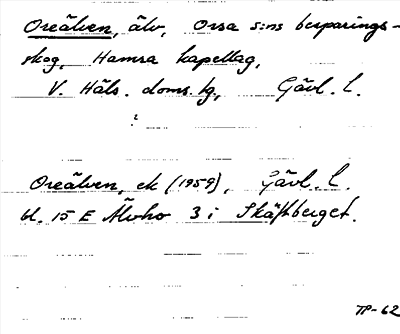 Oreälven, älv, Orsa s:ns besparings-
skog, Hamra kapellag,
V. Häls. doms.g, Gävl. l.
?
Oreälven, ek (1959), Gävl. l.
bl. 15 E Älvho 3 i Skäftberget.
TP-62